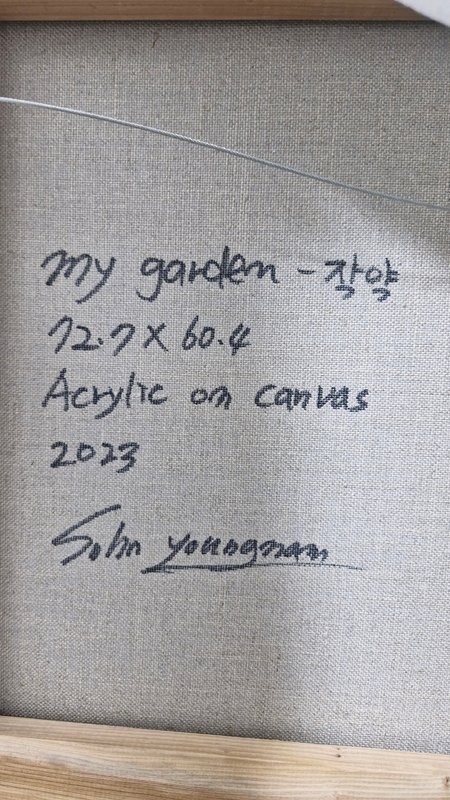 my garden - 작약
72.7 X 60.4
Acrylic on canvas
2023
Sohn youngnam